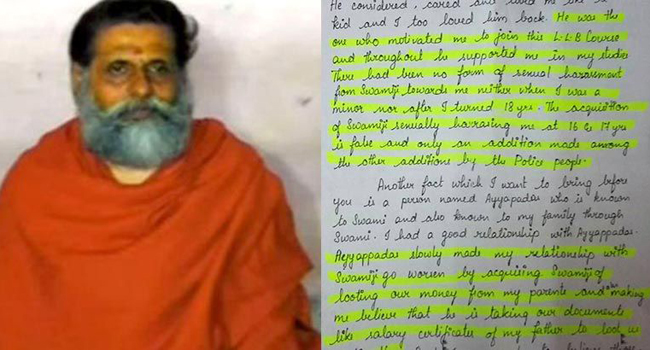 He considered, cared and loved me like a
kid and I too loved him back. He was the
one who motivated me to join this L.L.B Course
and throughout he supported me in my studies
There had been no form of sexual harassment
from Swamiji towards me neither when I was a
minor nor after I turned 18 yrs. The acquisition
of Swamiji sexually harrasing me at 16 & 17 yrs
is false and only an addition made among
the other additions by the Police people.
Another fact which I want to bring before
you is a person named Ayyapadas who is known
to Swami and also known to my family through
Swami. I had a good relationship with Ayyappadas.
Ayyappadas slowly made my relationship with
Swamiji go worsen by acquising Swamiji of
looting our money from my parents and also making
me believe that he is taking our documents
like salary certificates of my father to loot us